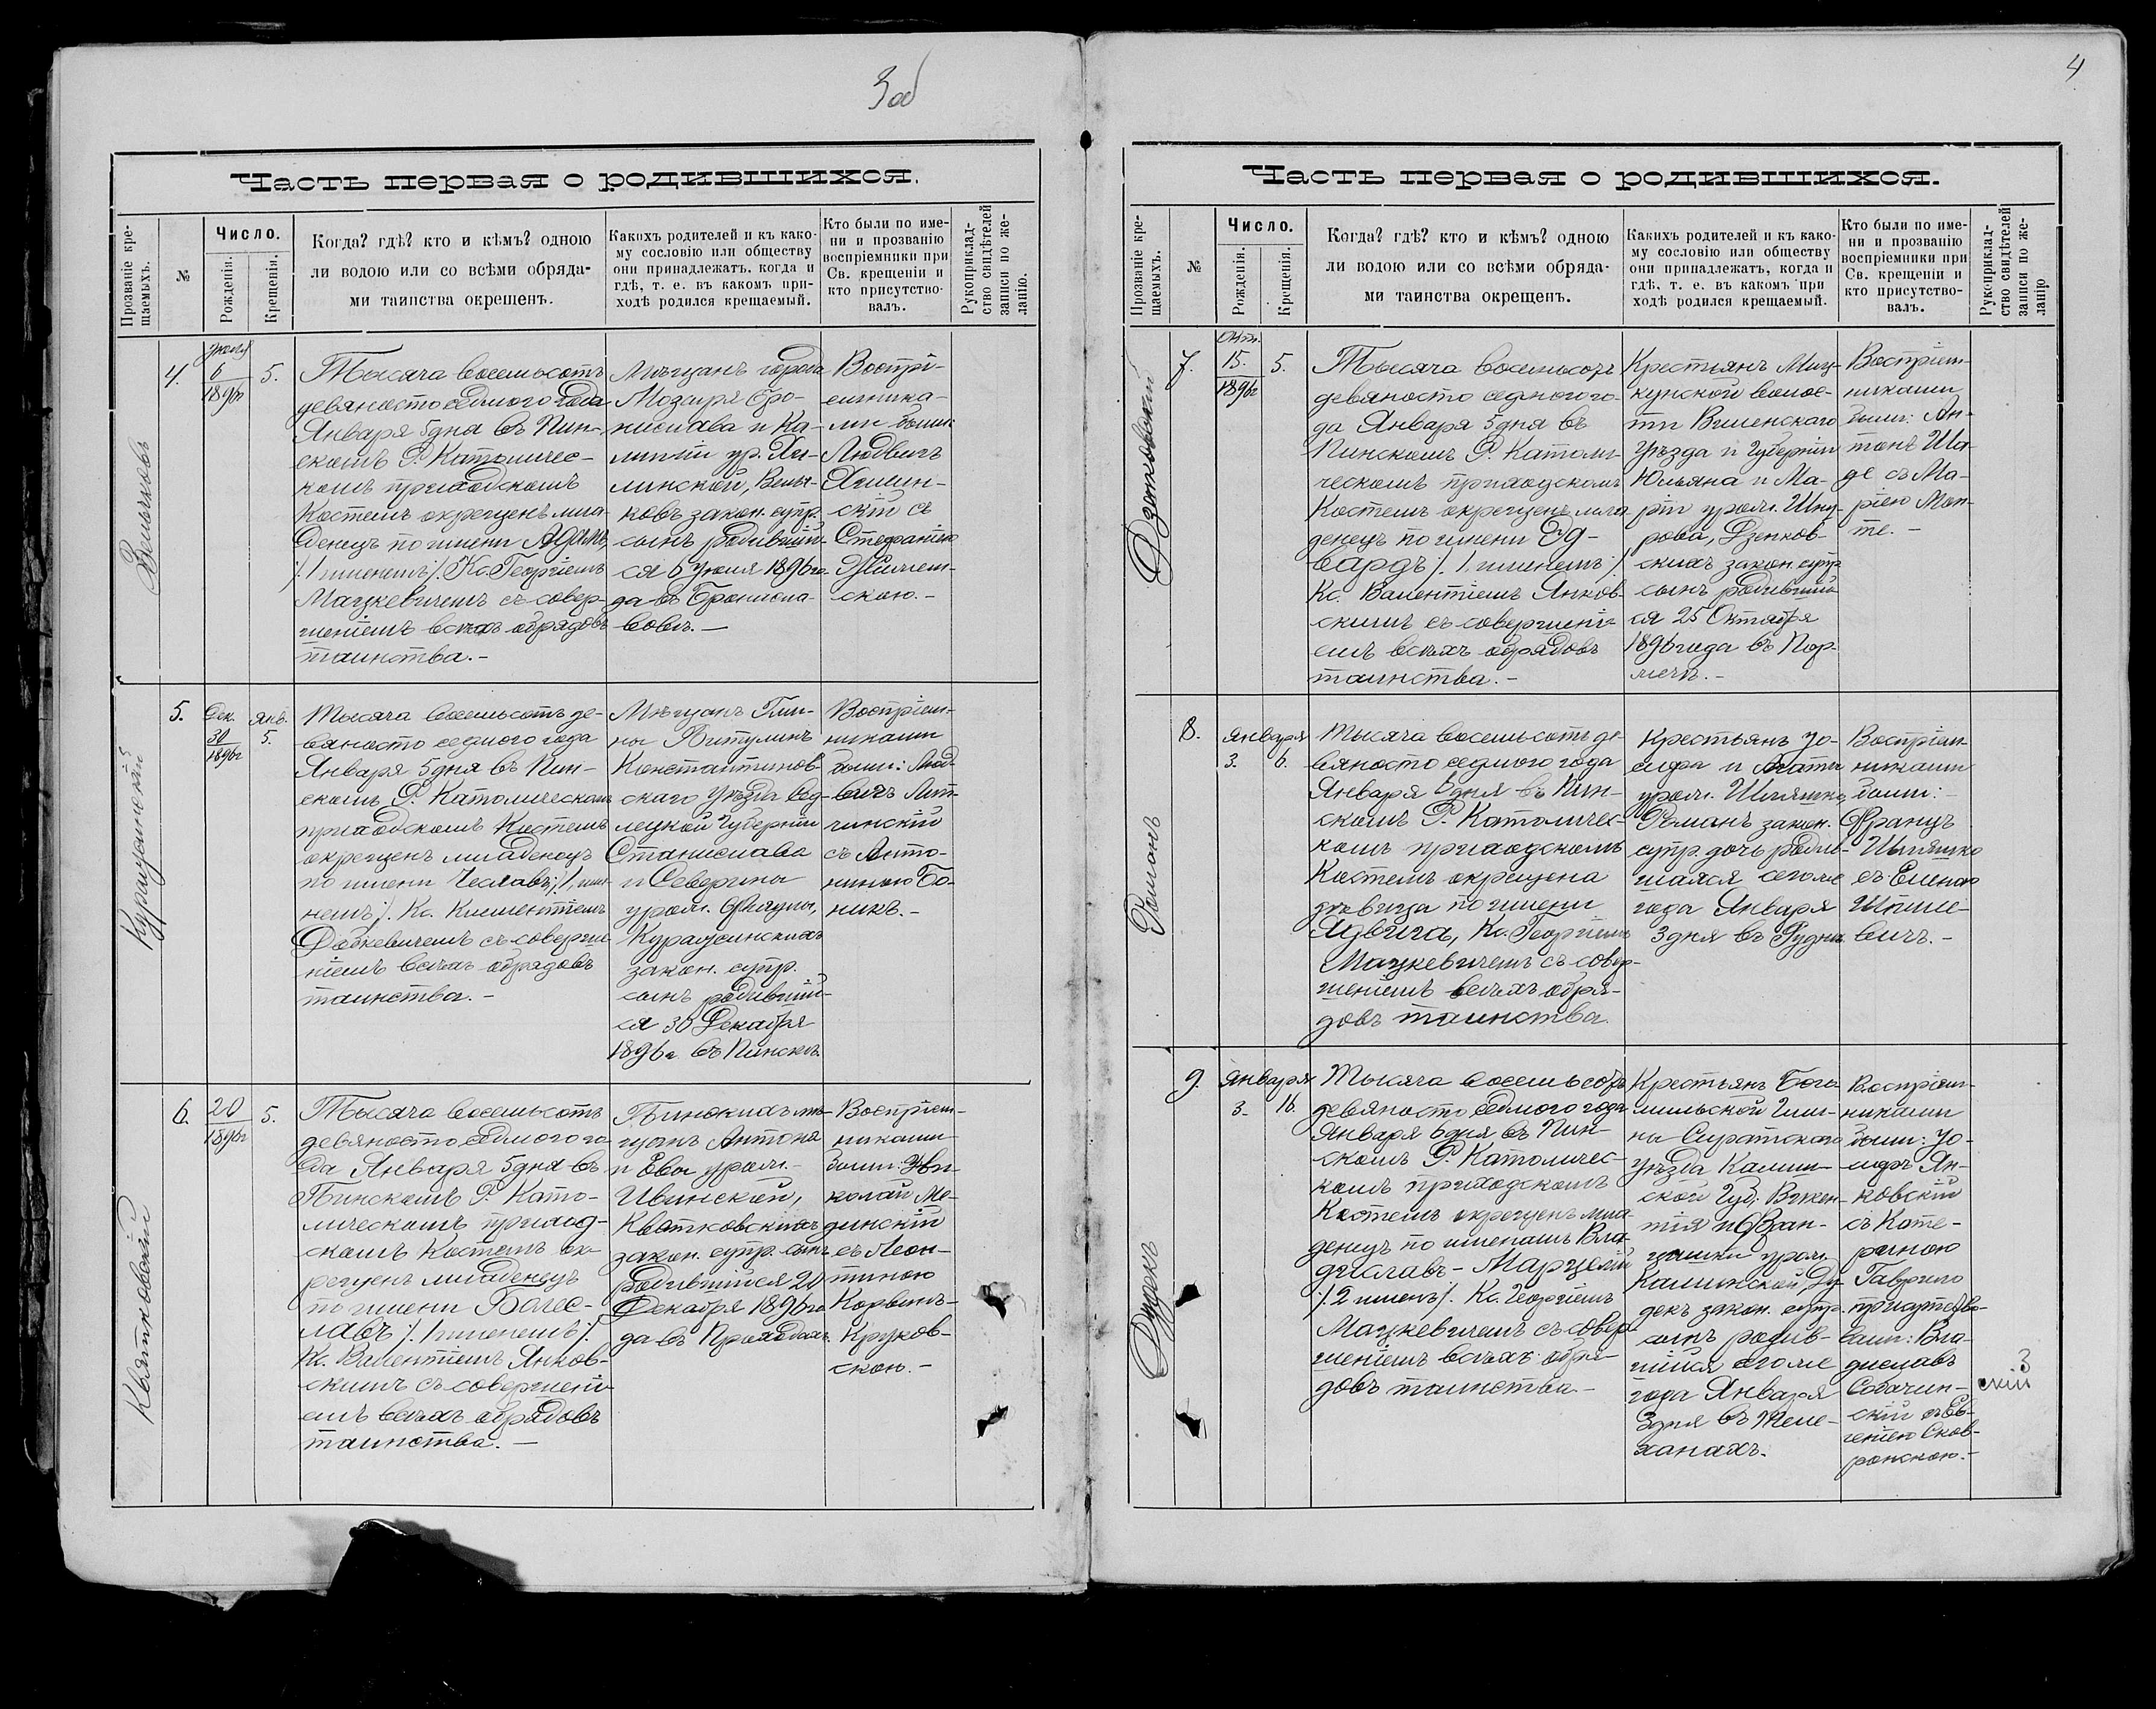 3об
Часть первая о родившихся.
Прозваніе кре-
щаемыхъ.
№
Число.
Рожденія.
Крещенія.
Когда? гдѣ? кто и кѣмъ? одною
ли водою или со всѣми обряда-
ми таинства окрещенъ.
Какихъ родителей и къ како-
му сословію или обществу
они принадлежатъ, когда и
гдѣ, т. е. въ какомъ при-
ходѣ родился крещаемый.
Кто были по име-
ни и прозванію
воспріемники при
Св. крещеніи и
кто присутство-
валъ.
Рукоприклад-
ство свидѣтелей
записи по же-
ланію.
Вельчковъ
4.
6
1896г
5.
Тысяча восемьсотъ
девяносто седмого года
Января 5 дня въ Пин-
скомъ Р. Католичес-
комъ приходскомъ
Костелѣ окрещенъ мла-
денецъ по имени Адамъ
/.1 именемъ/. Кс. Георгіемъ
Мацкевичемъ съ совер-
шеніемъ всѣхъ обрядовъ
таинства.-
Мѣщанъ города
Мозыря Бро-
нислава и Ка-
миліи ур. Хм-
линской, Вельч-
ковъ закон. супр.
сынъ родившій-
ся 6 Іюля 1896 го-
да въ Брониcла-
вовѣ.-
Воспрі-
емника-
ми были
Людвигъ
Хмѣлин-
скій съ
Стефаніею
скою.-
Куращинскій
5.
Дек.
30
1896г
Янв.
5.
Тысяча восемьсотъ де-
вяносто седмого года
Января 5 дня въ Пин-
скомъ Р. Католическомъ
приходскомъ Костелѣ
окрещенъ младенецъ
по имени Чеславъ /.1 име-
немъ/. Кс. Климентіемъ
съ соверше-
ніемъ всѣхъ обрядовъ
таинства.-
Мѣщанъ Гми-
ны Витулинъ
Константинов-
скаго Уѣзда Сѣд-
лецкой Губерніи
Станислава
и Северины
урож.
Куращинскихъ
закон. супр.
сынъ родившій-
ся 30 Декабря
1896г въ Пинскѣ.
Воспріем-
никами
были: Люд-
вигъ Лит-
чинскій
съ Анто-
ниною Бо-
никъ.-
Квятковскій
6.
20
1896г
5.
Тысяча восемьсотъ
девяносто седмого го-
да Января 5 дня въ
Пинскомъ Р. Като-
лическомъ приход-
скомъ Костелѣ ок-
рещенъ младенецъ
по имени Болес-
лавъ /.1 именемъ/.
Кс. Валентіемъ Янков-
скимъ съ совершені-
емъ всѣхъ обрядовъ
таинства.-
Пинскихъ мѣ-
щанъ Антона
и Евы урож.
Ивинской,
Квятковскихъ
закон. супр. сынъ
родившійся 20
Декабря 1896 го-
да въ
Воспріем-
никами
были:
колай Ме-
динскій
съ Леон-
тиною
Корвинъ-
Круков-
скою.-
4
Часть первая о родившихся.
Прозваніе кре-
щаемыхъ.
№
Число.
Рожденія.
Крещенія.
Когда? гдѣ? кто и кѣмъ? одною
ли водою или со всѣми обряда-
ми таинства окрещенъ.
Какихъ родителей и къ како-
му сословію или обществу
они принадлежатъ, когда и
гдѣ, т. е. въ какомъ при
ходѣ родился крещаемый.
Кто были по име-
ни и прозванію
воспріемники при
Св. крещеніи и
кто присутство-
валъ.
Рукоприклад-
ство свидѣтелей
записи по же-
ланію
Дзенковскій
7.
Окт.
15.
1896г
5.
Тысяча восемьсотъ
девяносто седмого го-
да Января 5 дня въ
Пинскомъ Р. Католи-
ческомъ приходскомъ
Костелѣ окрещенъ мла-
денецъ по имени Эд-
вардъ /.1 именемъ/.
Кс. Валентіемъ Янков-
скимъ съ совершені-
емъ всѣхъ обрядовъ
таинства.-
Крестьянъ Миц-
кунской волос-
ти Виленскаго
Уѣзда и Губерніи
Юльяна и Ма-
ріи урож.
Дзенков-
скихъ закон. супр.
сынъ родившій-
ся 25 Октября
1896 года въ Пор-
Воспріем-
никами
были: Ан-
тонъ
съ Ма-
ріею Мон-
те.-
Романъ
8.
Января
3.
6.
Тысяча восемьсотъ де-
вяносто седмого года
Января 6 дня въ Пин-
скомъ Р. Католичес-
комъ приходскомъ
Костелѣ окрещена
дѣвица по имени
Ядвига, Кс. Георгіемъ
Мацкевичемъ съ совер-
шеніемъ всѣхъ обря-
довъ таинства.
Крестьянъ Іо-
сифа и Агаты
урож. Шляшко,
Романъ закон.
супр. дочь родив-
шаяся сегоже
года Января
3 дня въ Рудкѣ
Воспріем-
никами
были:
Францъ
Шляшко
съ Еленою
вичъ.-
Дудекъ
9.
Января
3.
16.
Тысяча восемьсотъ
девяносто седмого года
Января 6 дня, въ Пин-
скомъ Р. Католичес-
комъ приходскомъ
Костелѣ окрещенъ мла-
денецъ по именамъ Вла-
диславъ-Марцелій
/.2 именъ/. Кс. Георгіемъ
Мацкевичемъ съ совер-
шеніемъ всѣхъ обря-
довъ таинства.-
Крестьянъ Бого-
мильской Гми-
ны Сѣратскаго
уѣзда Калиш-
ской Губ. Викен-
тія и Фран-
цишки урож.
Калинской, Ду-
декъ закон. супр.
сынъ родив-
шійся сегоже
года Января
3 дня въ Теле-
ханахъ.
Воспріем-
никами
были: Іо-
сифъ Ян-
ковскій
съ Кате-
риною
Гаврило
вали: Вла-
диславъ
Собачин-
скій съ Ев-
геніею Сков-
ронскою.-
3